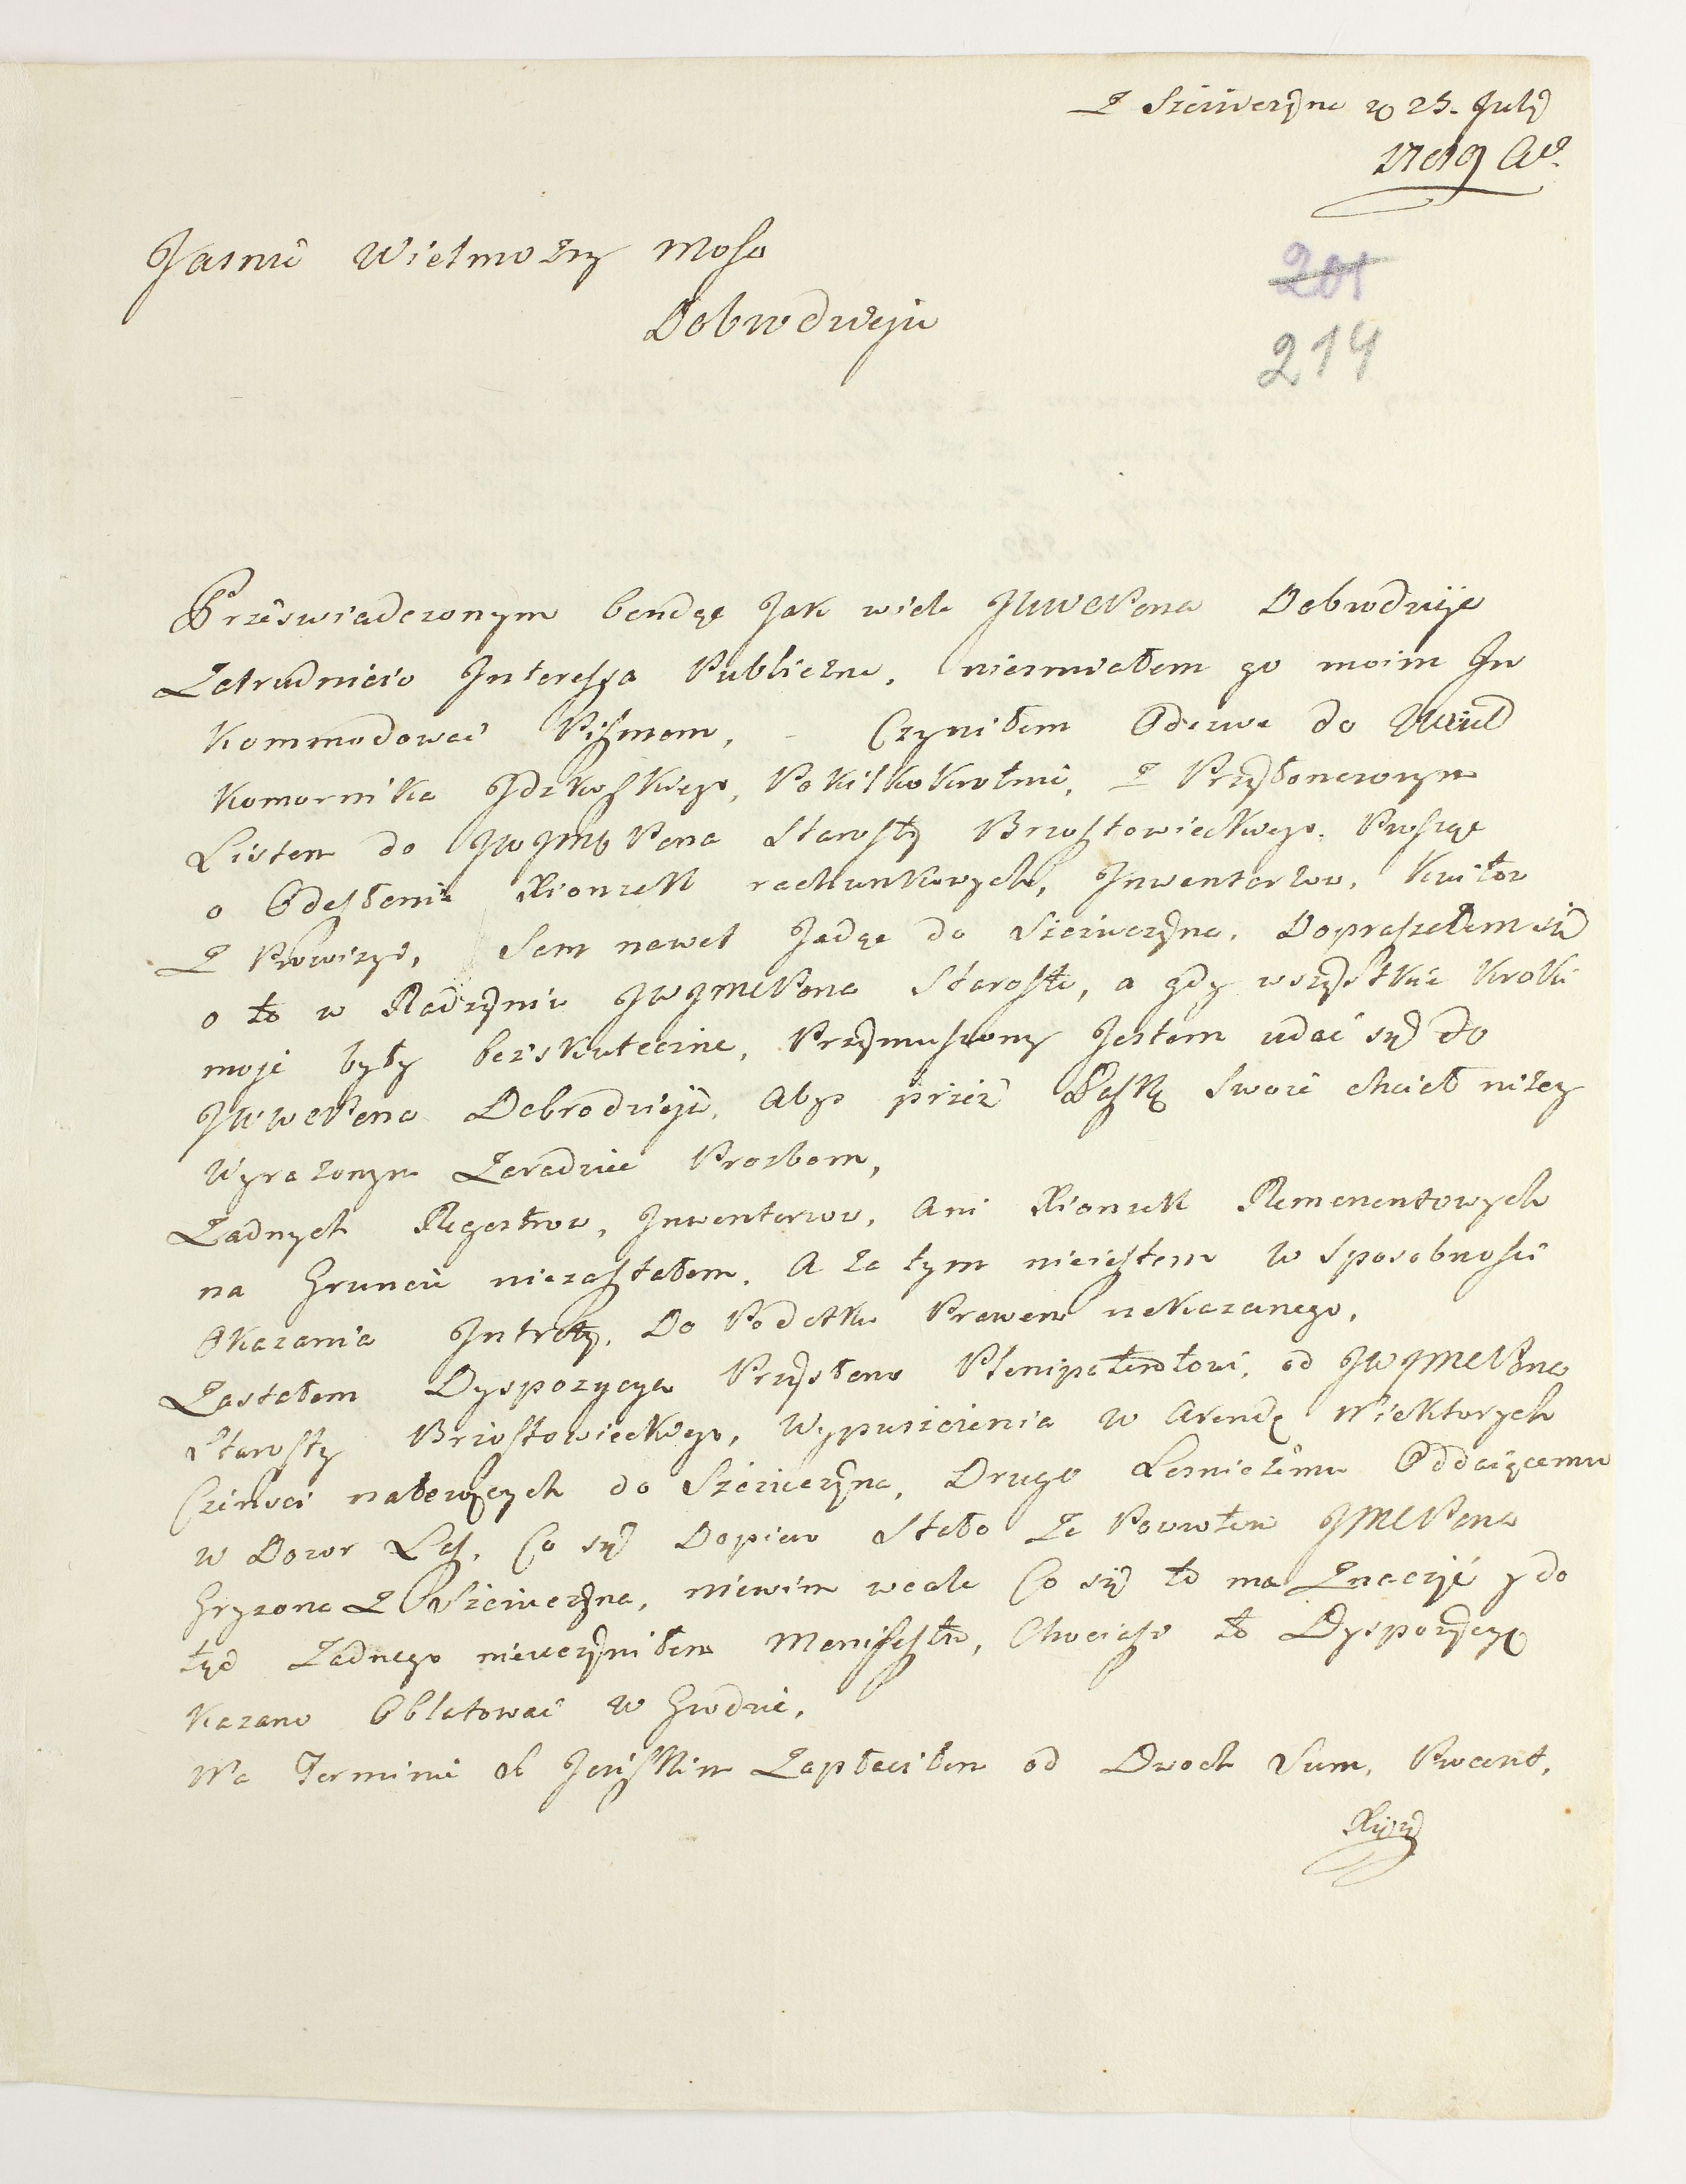 Z Szczuczyna D 25. Julij
1789 Ao.
Jasnie Wielmożny Mośo
Dobrodzieju
201
214
Przeświadczonym bendąc Jak wiele JWWcPana Dobrodzieja
Zatrudniaią Interessa Publiczne, nieśmiałem go moim In
kommodować Pismem, - Czyniłem Odezwe do
Komornika Po kilkokrotnie, z Przyłonczonym
Listem do JWJmć Pana Starosty Brzostowieckiego, Prosząc
o Odesłanie Xionzek rachunkowych, Inwentarzow, Kwitow
z Prowizyi, Sam nawet Jadąc do Szczuczyna, Dopraszałem się
o to w Radzyniu JWJMCPana Starosty, a gdy wszystkie kroki
moje były bezskuteczne, Przymuszony Jestem udać się do
JWWcPana Dobrodzieja, Abyś przez Łaskę Swoię chciał niżey
Wyrażonym Zaradzić Prozbom,
Żadnych Regestrow, Inwentarzow, Ani Xionzek Remenentowych
na Gruncie niezastałem, A za tym nieiestem w Sposobności
Okazania Intraty, Do Podatku Prawem nakazanego,
Zastałem Dyspozycya Przysłano Plenipotentowi, od JWJMCPana
Starosty Brzostowieckiego, Wypuszczenia w Arendę Niektorych
Czinszi należących do Szczuczyna, Drugo Lesniczemu Oddaiącemu
w Dozor Las, Co się Dopiero Stało Za Powrotem JMCPana
Gryzona z Szczuczyna, niewim wcale Co się to ma Znaczyć y do
tąd Żadnego nieuczyniłem Manifestu, Chociasz to Dyspozycyę
kazano Oblatować w Grodzie,
Na Terminie S. Jańskim Zapłaciłem od Dwoch Sum, Procent,